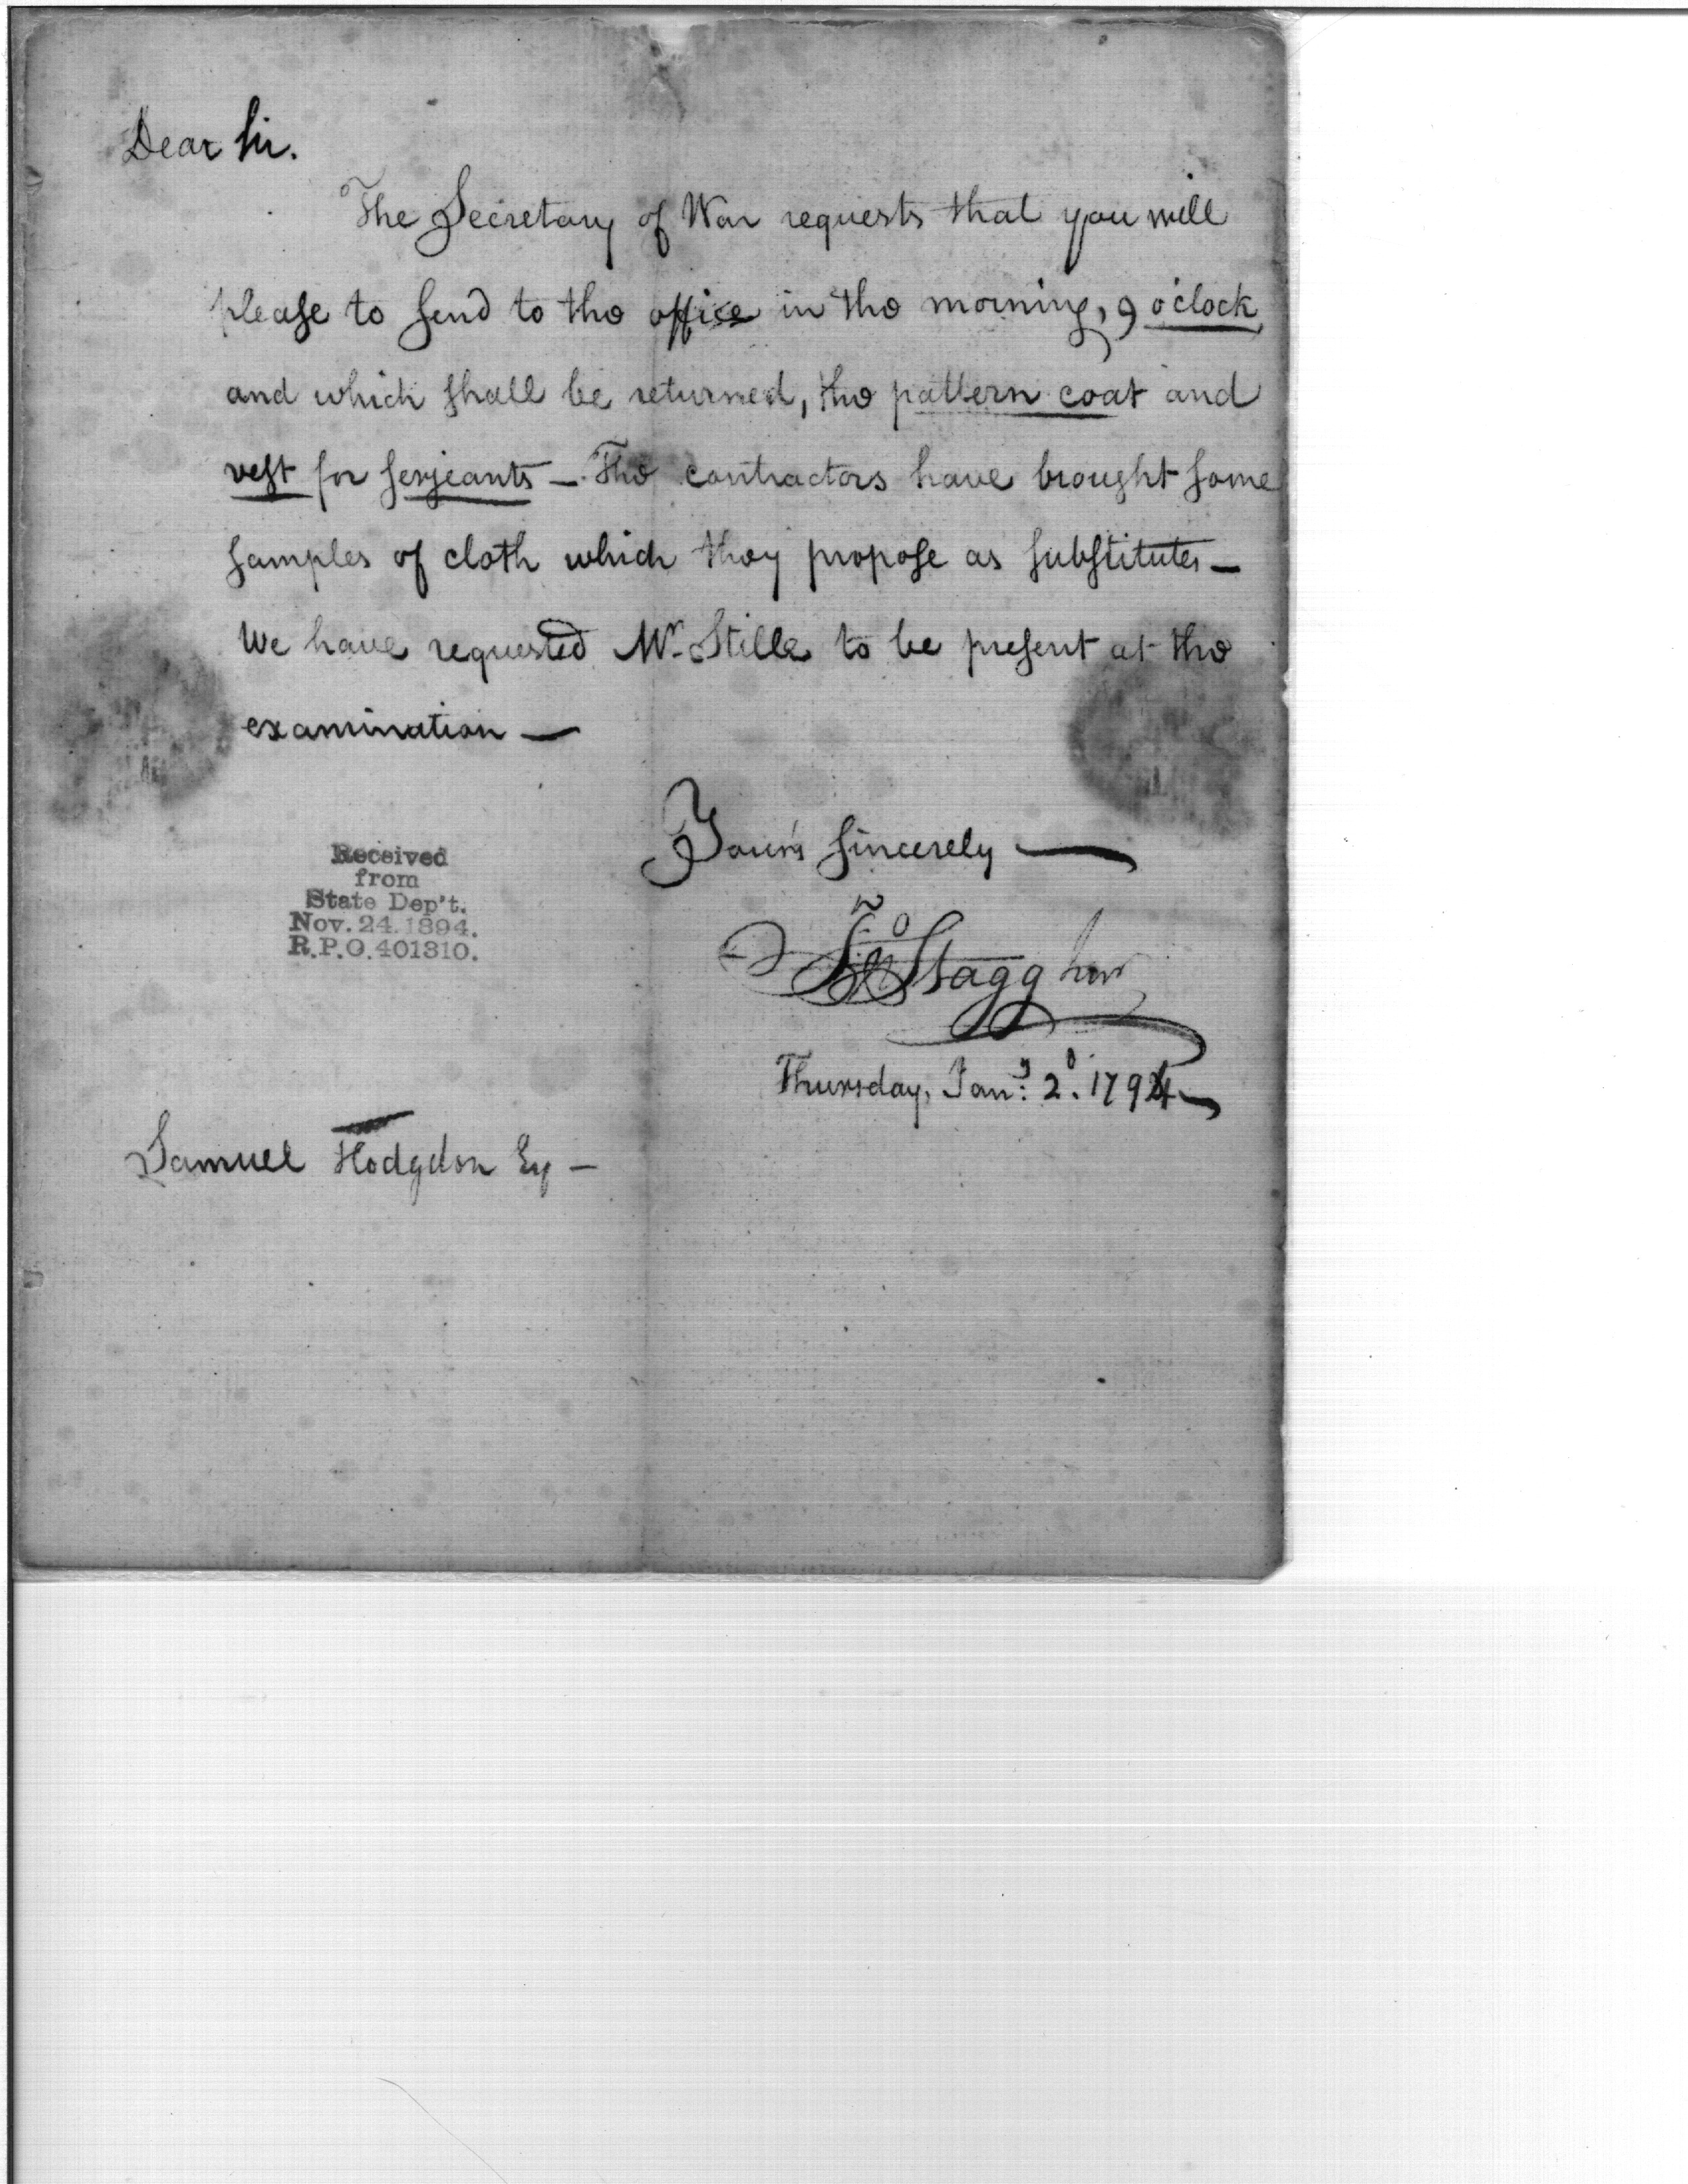 Dear Sir.
The Secretary of War requests that you will
please to send to the office in the morning, 9 o'clock,
and which shall be returned, the pattern coat and
vest for serjeants — The contractors have brought some
samples of cloth which they propose as substitutes —
We have requested Mr. Stille to be present at the
examination —
Yours sincerely —
Jno Stagg Junr
Thursday, Jany. 2d. 1794
Received
from
State Dep't.
Nov. 24. 1894.
R.P.O. 401310.
Samuel Hodgdon Esq —